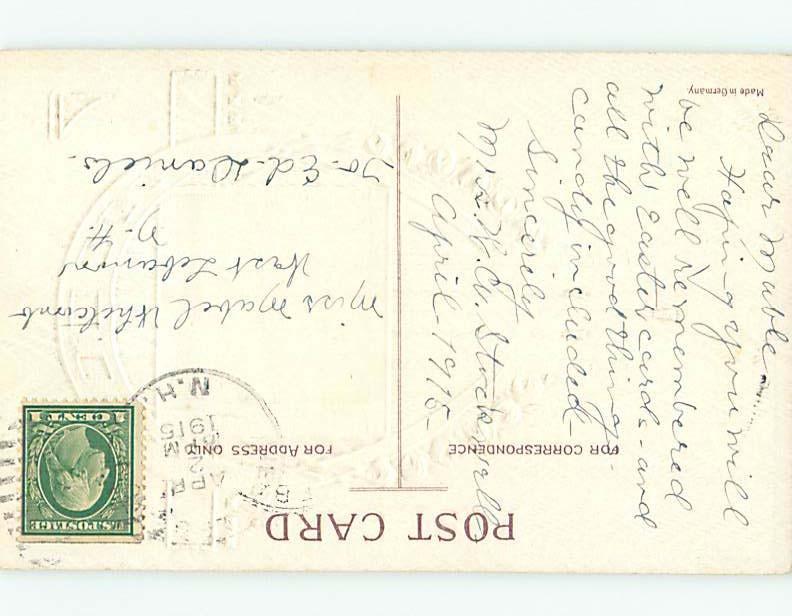 POST CARD
FOR CORRESPONDENCE
FOR ADDRESS ONLY
Made in Germany
Dear Mable
Hoping you will
be well remembered
with Easter cards - and
all the good things -
candy included -
Sincerely
Mrs. W. A. Stockwell
April - 1915 -
U.S. POSTAGE
1 CENT 1
APR
PM
1915
N.H.
Miss Mabel Whitcomb
West Lebanon
N. H.
To - Ed - Daniels -